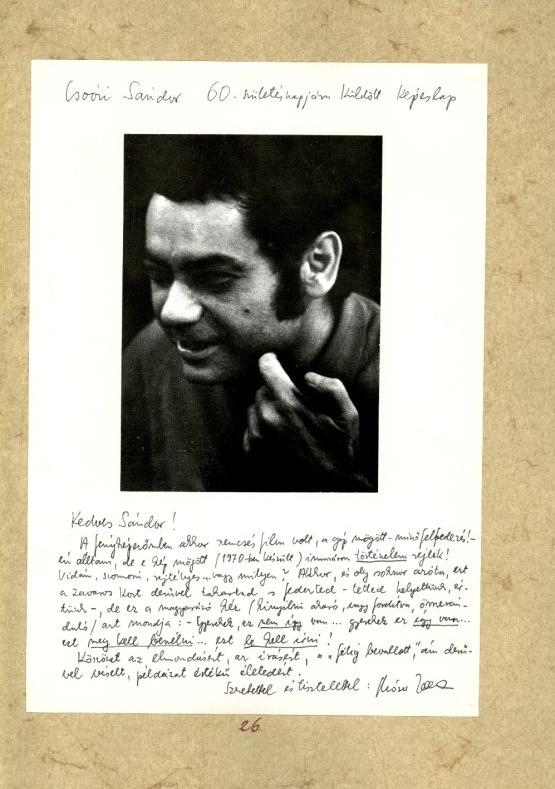 Csoóri Sándor 60. születésnapjára küldött képeslap
Kedves Sándor!
A fényképezőmben akkor nemcsak film volt, a gép mögött - minő felfedezés! -
én álltam, de e kép mögött (1970-ben készült) immáron történelem rejlik!
Vidám, szomorú, rejtélyes... vagy milyen? Akkor, és oly sokszor azóta, ezt
a zavaros kort derűvel takartad s fedezted - tetted helyettünk, ér-
tünk -, de ez a magyarázó kéz
azt mondja: - Gyerekek, ez nem így van... gyerekek ez így van...
ezt meg kell beszélni... ezt le kell írni!
Köszönet az elmondásért, az írásért, a "félig bevallott", ám derű-
vel viselt, példázat értékű életedért.
Szeretettel és tisztelettel:
26.